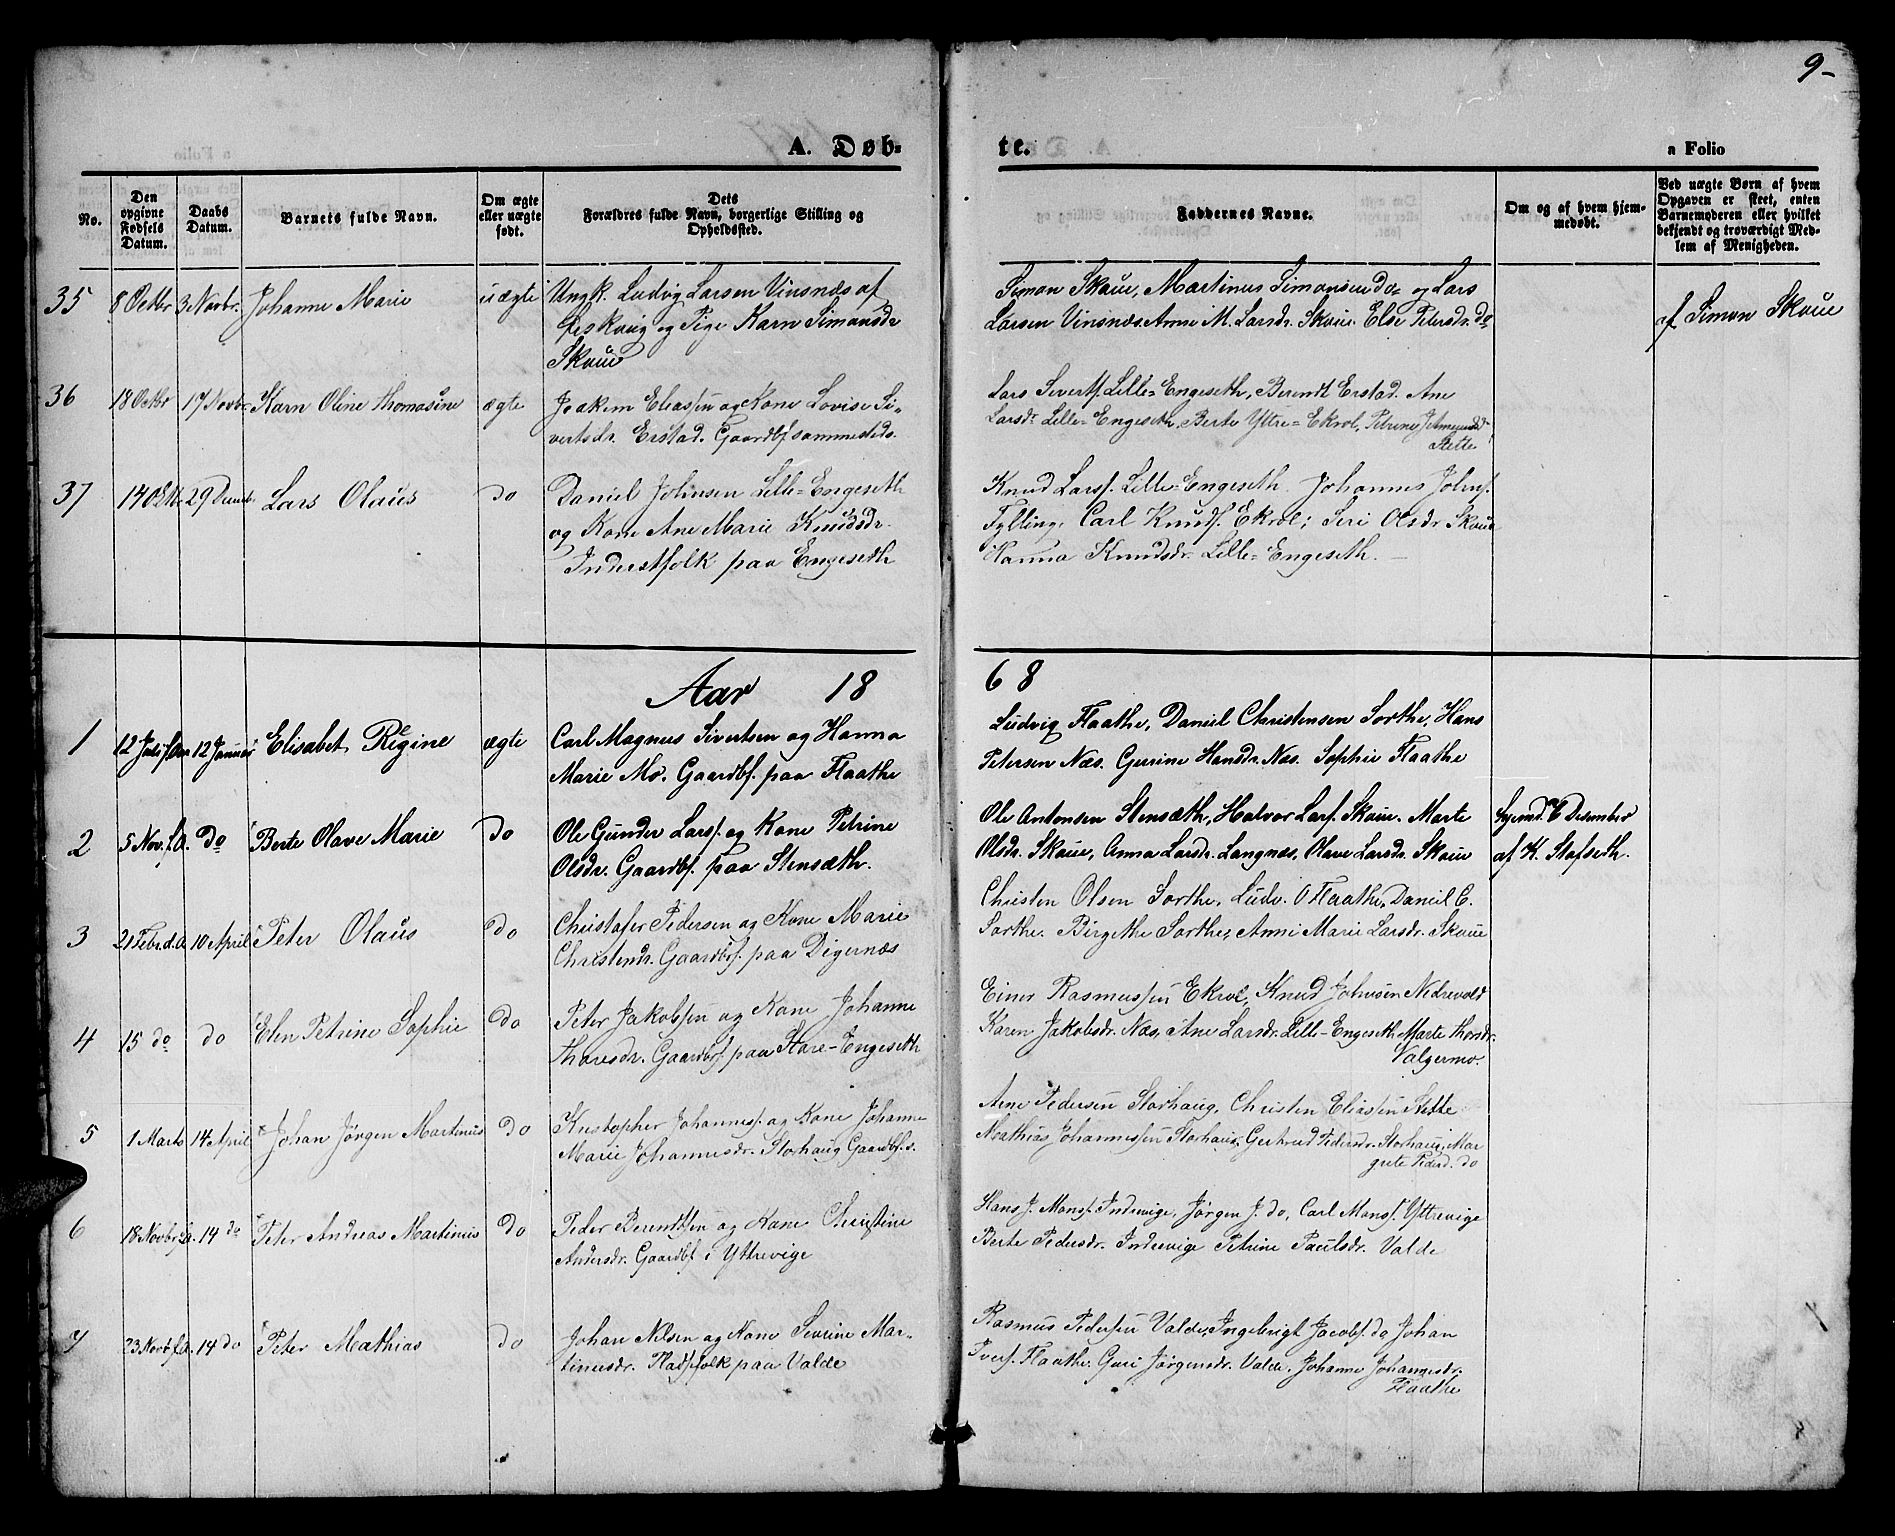 9-
A. Døb=
te.
a Folio
No.
Den opgivne Fødsels Datum.
Daabs Datum.
Barnets fulde Navn.
Om ægte eller uægte født.
Dets Forældres fulde Navn, borgerlige Stilling og Opholdssted.
Faddernes Navne.
Om og af hvem hjemmedøbt.
Ved uægte Børn af hvem Opgaven er skeet, enten Barnemoderen eller hvilket bekjendt og troværdigt Medlem af Menigheden.
35 8 Octbr 3 Novbr. Johanne Marie uægte Ungk. Ludvig Larsen Vinsnæs af
og Pige Karn Simonsdr
Skoue
Simon Skoue, Martinus Simonsen do og Lars
Larsen Vinsnæs Anne M. Larsdr. Skoue. Else Petersdr. do
af Simon Skoue
36 18 Octbr 17 Novbr Karn Oline Thomasine ægte Joakim Eliassen og Kone Lovise Si-
vertsdr. Erstad. Gaardbf sammesteds.
Lars Sivertf. Lille=Engeseth, Berendt Erstad. Ane
Larsdr Lille=Engeseth, Berte Yttre=Ekrol, Petrine
Stette
37 14 Octbr. 29 Decmb. Lars Olaus do Daniel Johnsen Lille=Engeseth
og Kone Ane Marie Knudsdr.
Inderstfolk paa Engeseth
Knud Larsf. Lille=Engeseth. Johannes Johnf.
Fylling, Carl Knudf. Ekrol; Seri Olsdr. Skoue
Hanna Knudsdr. Lille=Engeseth.
Aar 18
68
1 12 Juli f.Aar 12 Januar Elisabet Regine ægte Carl Magnus Sivertsen og Hanna
Marie Mo. Gaardbf. paa Flaathe
Ludvig Flaathe, Daniel Christensen Sorthe, Hans
Petersen Næs. Gurine Hansdr. Næs. Sophie Flaathe
2 5 Nov. f.A. do Berte Olave Marie do Ole Gunder Larsf. og Kone Petrine
Olsdr. Gaardbf. paa Stensæth.
Ole Antonsen Stensæth, Halvor Larsf. Skoue. Marte
Olsdr. Skoue, Anna Larsdr. Langnæs, Olave Larsdr. Skoue
Desember
af K. Stafseth.
3 21 Febr. d.A. 10 April Peter Olaus do Christofer Pedersen og Kone Marie
Christendr. Gaardbrf. paa Digernæs
Christen Olsen Sorthe, Ludv. O Flaathe, Daniel C.
Sorthe. Birgethe Sorthe, Anne Marie Larsdr. Skoue
4 15 do do Elen Petrine Sophie do Peter Jakobsen og Kone Johanne
Thoresdr. Gaardbrf. paa Store-Engeseth
Einer Rasmussen Ekrol, Knud Johnsen Nedrevold
Karen Jakobsdr. Næs, Ane Larsdr. Lille-Engeseth Marte Thordr.
Valgermo.
5 1 Marts 14 April Johan Jørgen Martinus do Kristopher Johannesf. og Kone Johanne
Marie Johannesdr. Storhaug Gaardbf. s.
Arne Pedersen Storhaug, Christen Eliassen Stette
Mathias Johannessen Storhaug, Gertrud Pedersdr. Storhaug, Mar
grete Pedersd. do
6 18 Novbr f.A. 14 do Peter Andreas Martinus do Peder Berendtsen og Kone Christine
Andersdr. Gaardbf. i Yttrevige
Hans J. Monsf. Indrevige, Jørgen J. do, Carl Monsf. Yttrevige
Berte Pedersdr. Indrevige Petrine Paulsdr. Valde
7 23 Novb f.A. 14 do Peter Mathias do Johan Nilsen og Kone Severine Mar-
tinusdr. Pladsfolk paa Valde
Rasmus Pedersen Valde, Ingebrigt Jacobf. do Johan
Iverf. Flaathe. Guri Jørgensdr. Valde, Johanne Johannesdr.
Flaathe